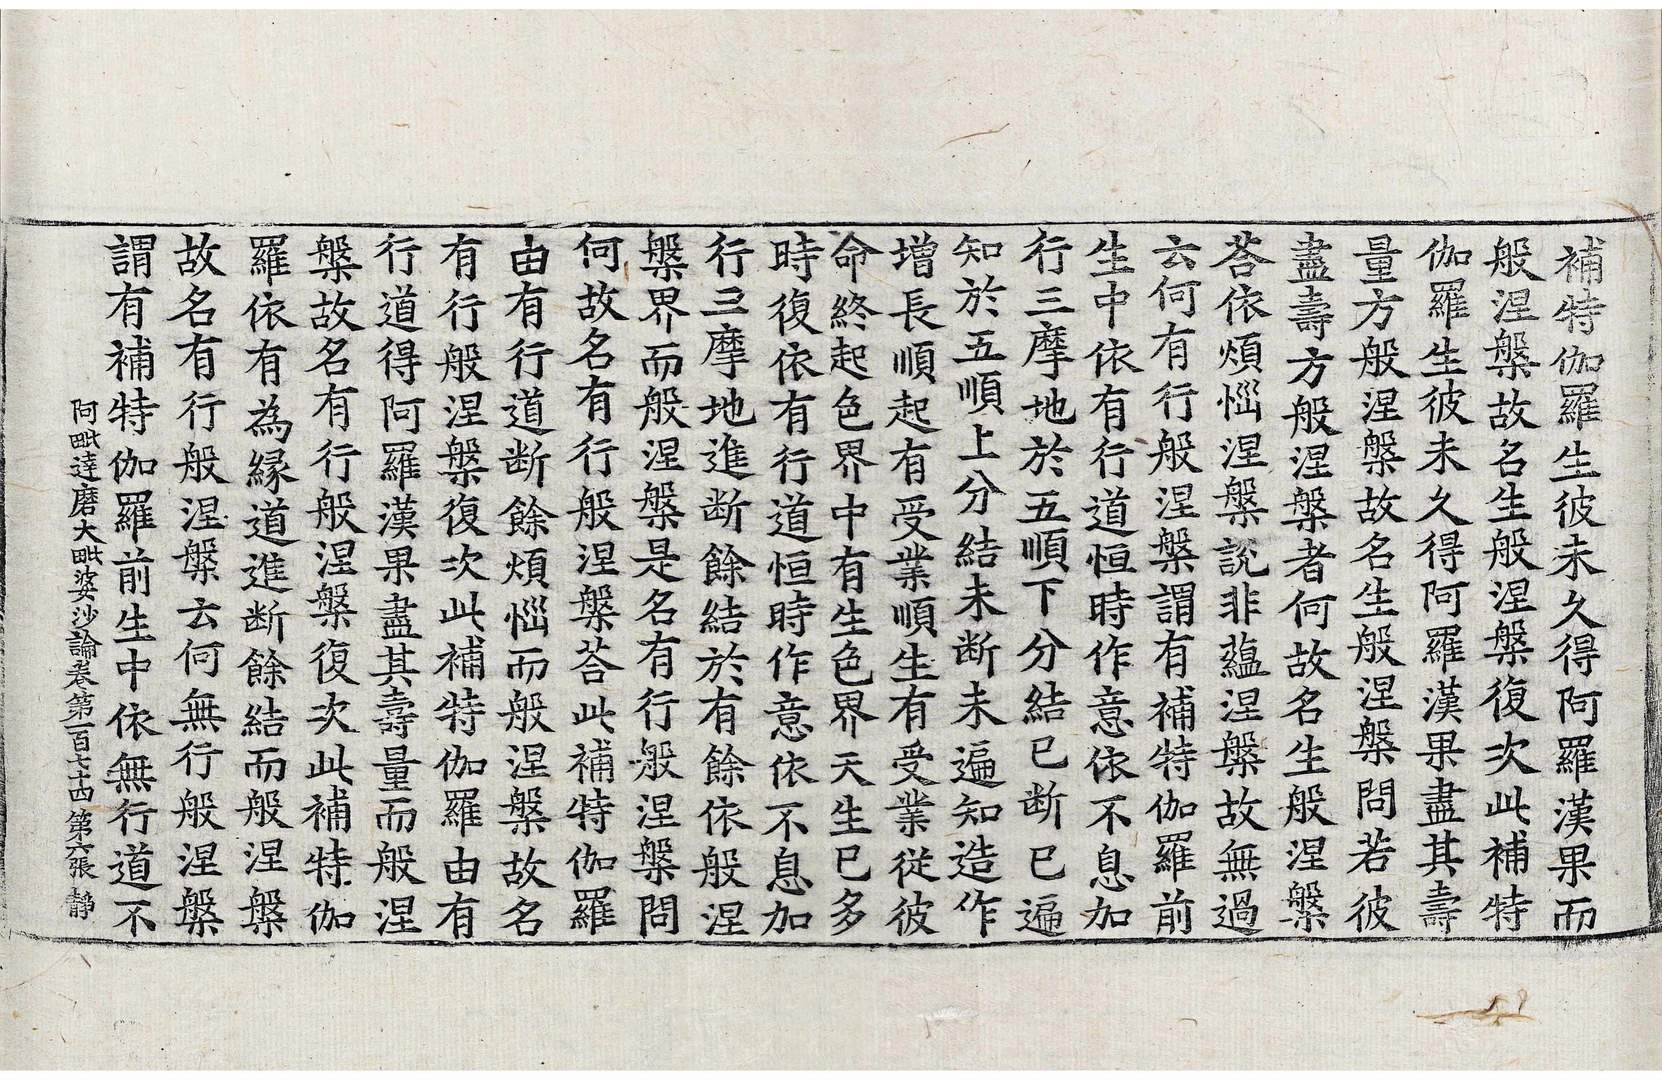 補特伽羅生彼未久得阿羅漢果而
般涅槃故名生般涅槃復次此補特
伽羅生彼未久得阿羅漢果盡其壽
量方般涅槃故名生般涅槃問若彼
盡壽方般涅槃者何故名生般涅槃
荅依煩惱涅槃說非蘊涅槃故無過
云何有行般涅槃謂有補特伽羅前
生中依有行道恒時作意依不息加
行三摩地於五順下分結已断已遍
知於五順上分結未断未遍知造作
增長順起有受業順生有受業從彼
命終起色界中有生色界天生已多
時復依有行道恒時作意依不息加
行三摩地進断餘結於有餘依般涅
槃界而般涅槃是名有行般涅槃問
何故名有行般涅槃荅此補特伽羅
由有行道断餘煩惱而般涅槃故名
有行般涅槃復次此補特伽羅由有
行道得阿羅漢果盡其壽量而般涅
槃故名有行般涅槃復次此補特伽
羅依有為緣道進断餘結而般涅槃
故名有行般涅槃云何無行般涅槃
謂有補特伽羅前生中依無行道不
阿毗達磨大毗婆沙論卷第一百七十四 第六張 靜